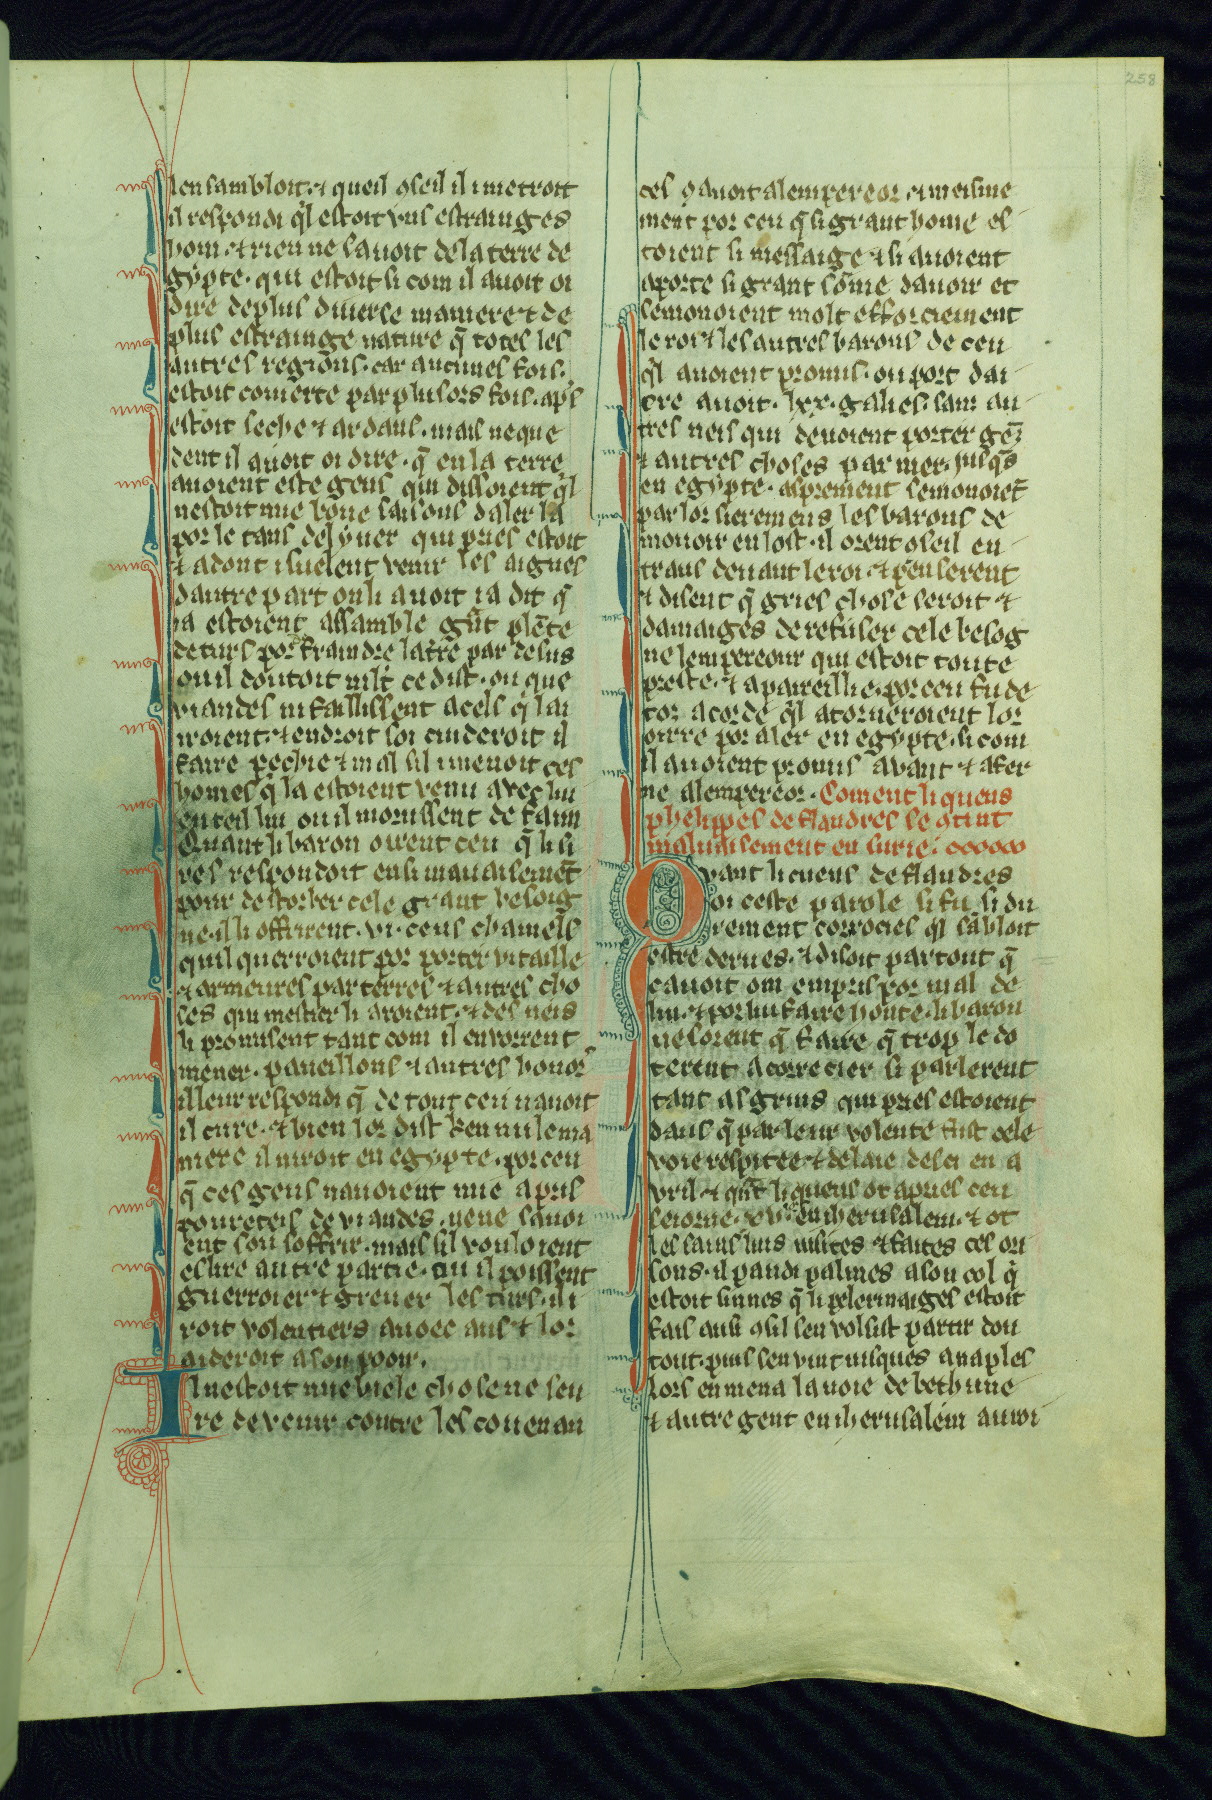 258
len sambloit. ⁊ queil ↄseil il i metroit
il respondi q̉l estoit uns estranges
hom. ⁊ rien ne savoit de la terre de
gypte. qui estoit si com il avoit oi
dire de plus diverse maniere ⁊ de
plus estrainge nature q̄ totes les
autres regions. car aucunes fois.
estoit coverte par plusors fois. ap̉s
estoit seche ⁊ ardans. mais neque
dent il avoit oi dire. q̄ en la terre
avoient este gens qui dissoient q̉l
nestoit mie bone saisons daler la
por le tans de lyver qui pres estoit
⁊ adont i suelent venir les aigues
dautre part on li avoit ia dit q̄
ia estoient assamble gr̃t plēte
de turs por fraindre la tr̃e par desus
ou il doutoit mlt̃ ce dist. ou que
viandes ni faillissent a cels q̉ lai
iroient. ⁊ endroit soi cuideroit il
faire pechie ⁊ mal sil i menoit ces
homes q̉ la estoient venu avec lui
en teil liu ou il morussent de faim
Quant li baron oirent ceu q̄ li si
res respondoit ensi mauaisemēt
pour destorber cele grant besoig
ne. il li offrirent. vi. cens chameils
quil querroient por porter vitaille
⁊ armeures par terres ⁊ autres cho
ses qui mestier li aroient. ⁊ des neis
li promisent tant com il en vorrent
mener. paveillons ⁊ autres honor̉
il leur respondi q̄ de tout ceu navoit
il cure. ⁊ bien lor dist ken nule ma
niere il niroit en egypte. por ceu
q̄ ces gens navoient mie apris
poureteis de viandes. ne ne savoi
ent son soffrir. mais sil vouloient
eslire autre partie. ou il poissent
guerroier ⁊ grever les turs. il i
roit volentiers avoec aus ⁊ lor
aideroit a son pooir.
Il nestoit mie biele chose ne seu
re de venir contre les covenan
ces ꝯ avoit a lempereor. ⁊ meisme
ment por ceu q̄ si grant home es
toient si messaige ⁊ si avoient
aporte si grant sōme davoir et
semonoient molt efforciement
le roi ⁊ les autres barons de ceu
q̉l avoient promis. ou port dai
cre avoit. lxx. galies. sans au
tres neis qui devoient porter gēz
⁊ autres choses par mer. jusq̄s
en egypte. asprement semonoiēt
par lor sieremens les barons de
movoir en lost. il orent ↄseil en
trans devant le roi. ⁊ penserent
⁊ disent q̄ gries chose seroit ⁊
damaiges de refuser cele besog
ne lempereour qui estoit toute
preste. ⁊ apareillie. por ceu fu de
tor acorde q̉l atorneroient lor
oirre por aler en egypte. si com
il avoient promis avant ⁊ afer
me a lempereor. Coment li quens
phelippes de flandres se ↄtint
malvaisement en surie.
Quant li cuens de flandres
oi ceste parole si fu si du
rement corrocies q̉l sābloit
estre derves. ⁊ disoit partout q̄
cavoit om empris por mal de
lui. ⁊ por lui faire honte. li baron
ne sorent q̄ faire q̄ trop le do
terent a correcier si parlerent
tant as grius qui pres estoient
dans q̄ par leur volente fust cele
voie respitee ⁊ delaie desci en a
vril. ⁊ qñt li quens ot apries ceu
seiorne. xv. en iherusalem. ⁊ ot
les sains luis visites ⁊ faites ces ori
sons. il pandi palmes a son col q̉
estoit sinnes q̄ li pelerinaiges estoit
fais ausi ↄ sil sen volsist partir dou
tout. puis sen vint iusques a naples
lors en mena lavoie de bethune
⁊ autre gent en iherusalem au roi